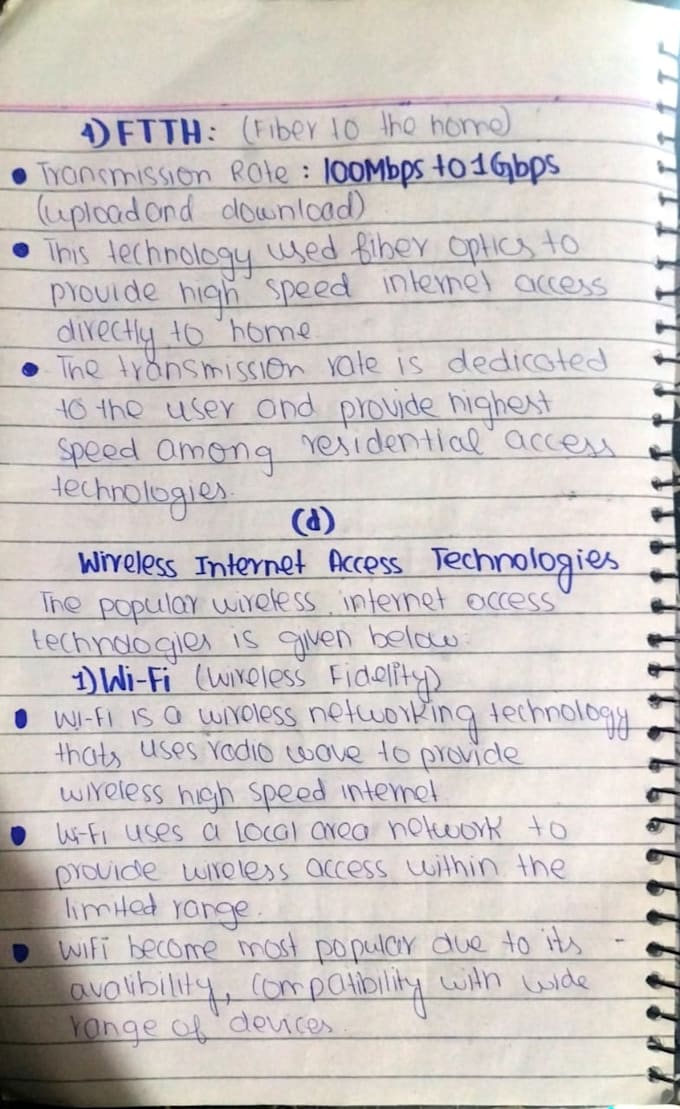 4) FTTH: (Fiber To the home)
• Transmission Rate : 100Mbps to 1Gbps
(upload and download)
• This technology used fiber optics to
provide high speed internet access
directly to home.
• The transmission rate is dedicated
to the user and provide highest
speed among residential access
technologies.
(d)
Wireless Internet Access Technologies
The popular wireless internet access
technologies is given below.
1) Wi-Fi (Wireless Fidelity)
• Wi-Fi is a wireless networking technology
thats uses radio wave to provide
wireless high speed internet
• Wi-Fi uses a local area network to
provide wireless access within the
limited range.
• WiFi become most popular due to its -
avalibility, compatibility with wide
range of devices.